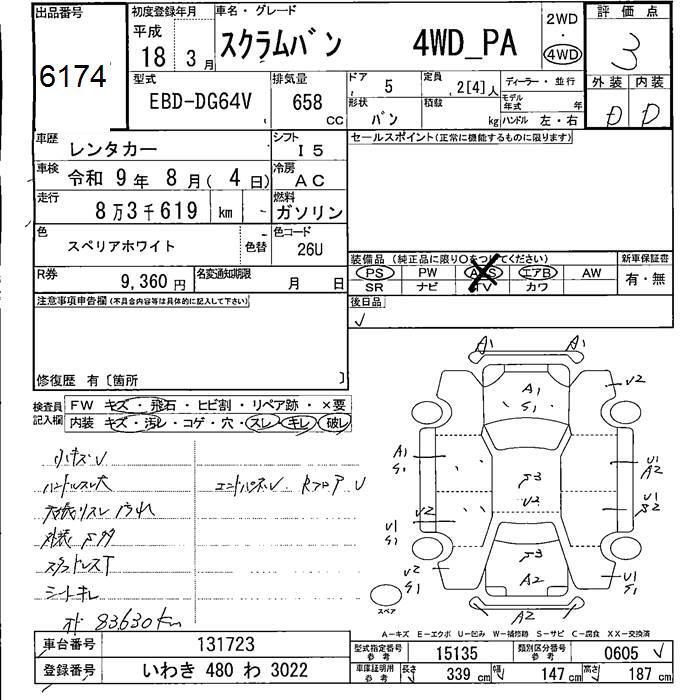 出品番号
6174
初度登録年月
平成
18 年 3 月
車名・グレード
スクラムバン 4WD_PA
2WD
・
4WD
評価点
3
外装 内装
D D
型式
EBD-DG64V
排気量
658
CC
ドア
5
定員
2[4]人
ディーラー・並行
形状
バン
積載
kg
モデル
年式
年
ハンドル 左・右
車歴
レンタカー
シフト
I5
セールスポイント(正常に機能するものに限ります)
車検
令和 9年 8月( 4 日)
冷房
AC
走行
8万3千619 km -
燃料
ガソリン
色
スペリアホワイト
-
色替
色コード
26U
装備品(純正品に限り○をつけてください)
PS PW エアB AW
SR ナビ TV カワ
新車保証書
有・無
R券
9,360 円
名変通知期限
月 日
後日品
✓
注意事項申告欄(不具合内容等は具体的に記入して下さい)
修復歴 有〔箇所 〕
検査員
記入欄
FW キズ・飛石・ヒビ割・リペア跡・×要
内装 キズ・汚レ・コゲ・穴・スレ・キレ・破レ
小キズU
ハンドルスレ大
エンドパネルU RフロアU
シートキレ
83630km
A1 A1
A1
S1
U2
A1
S1
U1
A2
S3
U2
U2
U1
S2
U1
S1
S3
A2
U2
S1
U1
S1
A2
スペア
A-キズ E-エクボ U-凹み W-補修跡 S-サビ C-腐食 XX-交換済
車台番号
131723
登録番号
いわき 480 わ 3022
型式指定番号
参考
15135
類別区分番号
参考
0605 ✓
車庫証明用
参考
長さ
339 cm
幅
147 cm
高さ
187 cm